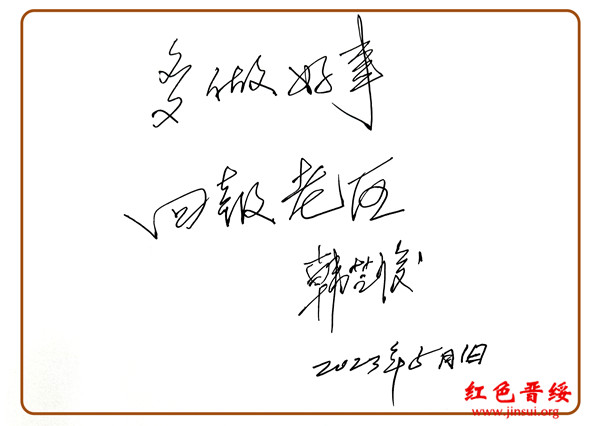 多做好事
回报老区
韩莹俊
2023年5月1日
红色晋绥
www.jinsui.org